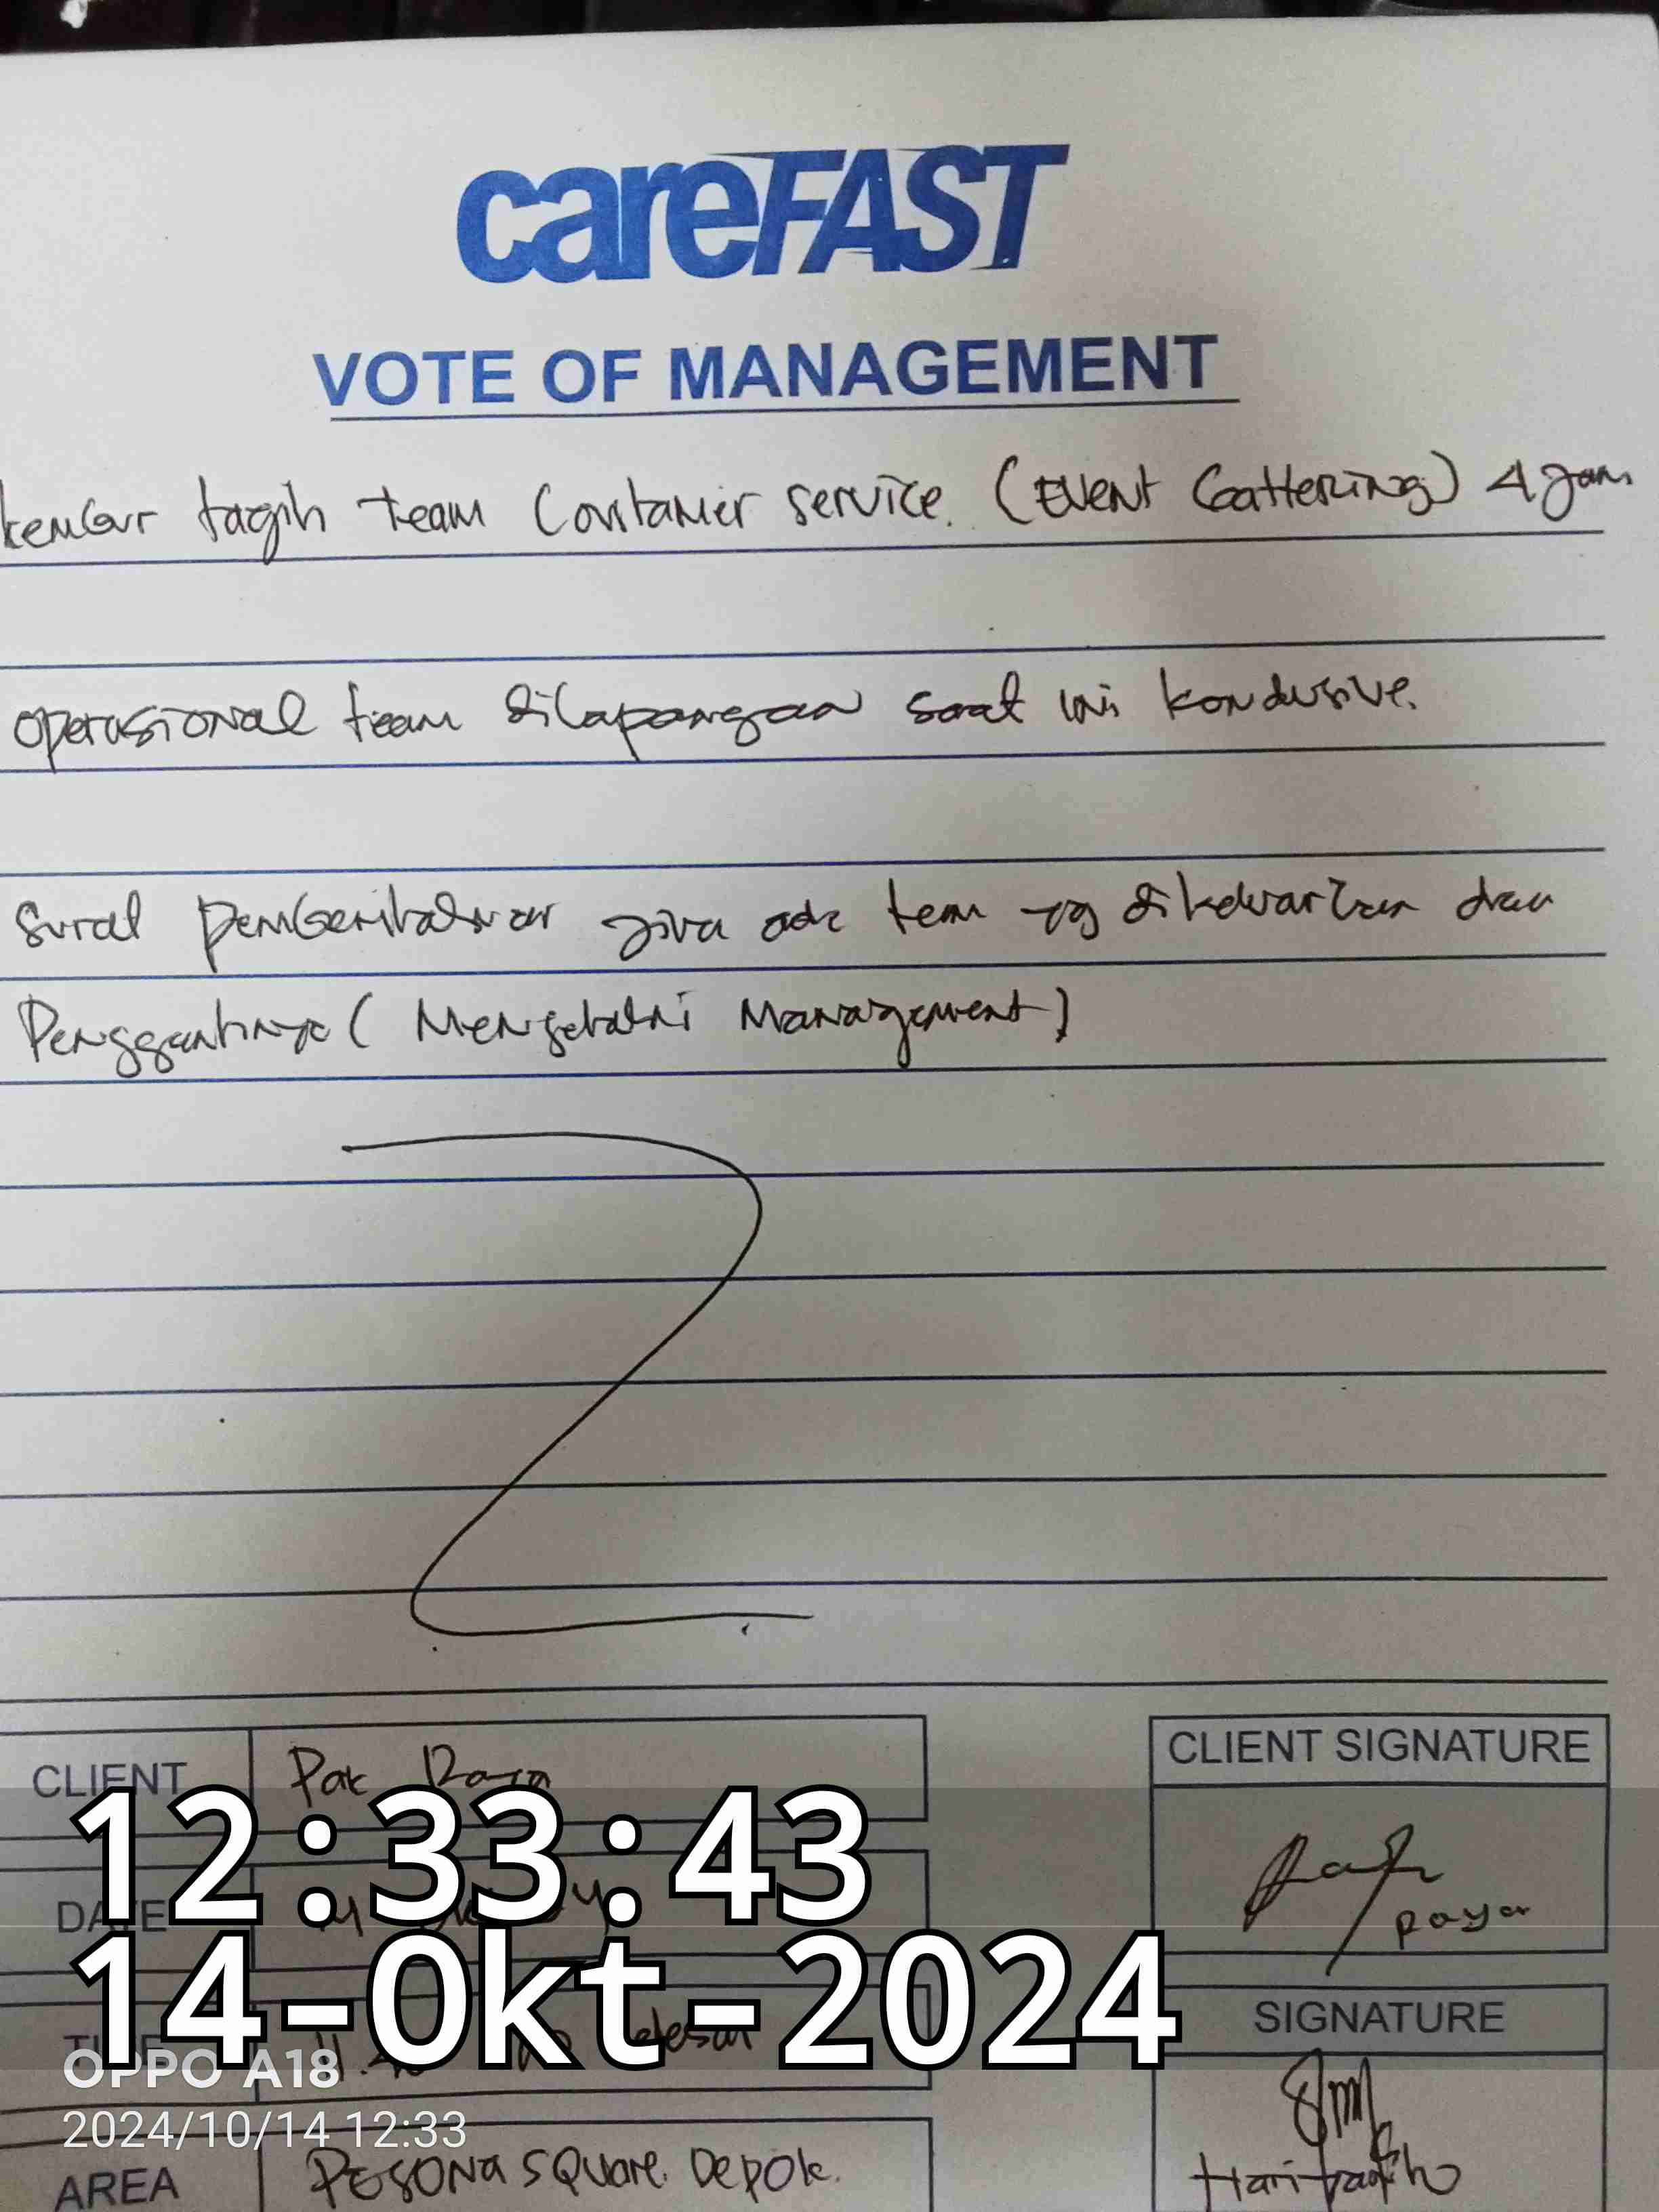 careFAST
VOTE OF MANAGEMENT
tagih team service. (Event Gattering) 4 jam
operasional team dilapangan saat ini kondusive.
Surat ada team yg dikeluarkan dan
Penggantinya ( Mengetahui Management )
CLIENT Pak
CLIENT SIGNATURE
12:33:43
DATE
Raya
14-Okt-2024
SIGNATURE
OPPO A18
2024/10/14 12:33
AREA PESONA SQUARE DEPOK.